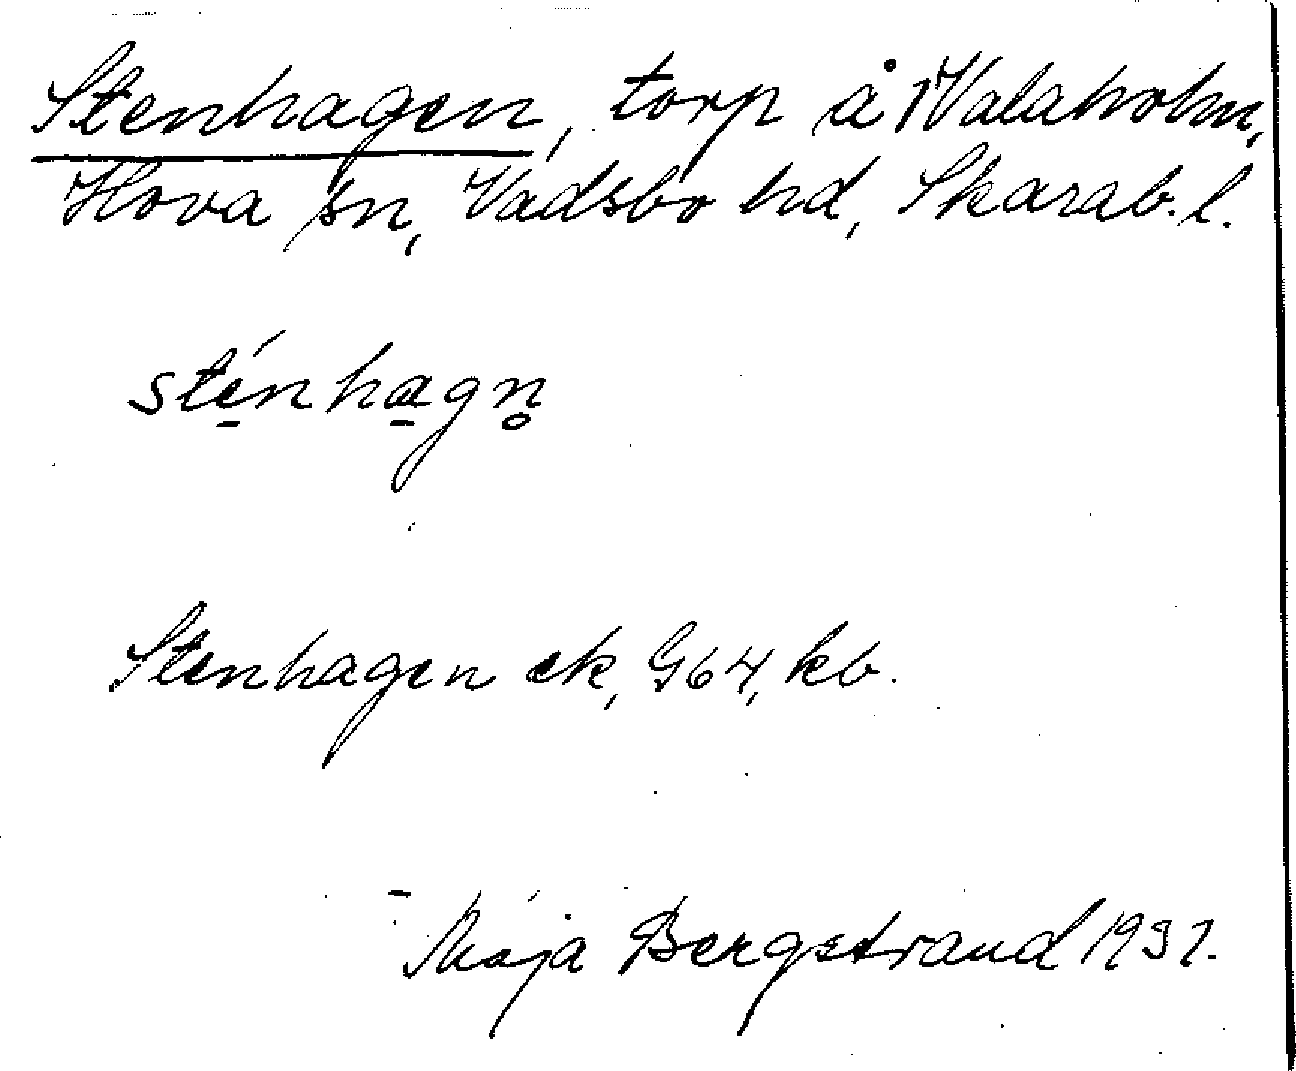 Stenhagen, torp å Valaholm,
Hova sn, Vadsbo hd, Skarab. l.
sté̱nha̱gn̥
Stenhagen ek, G64, kb.
Maja Bergstrand 1937.